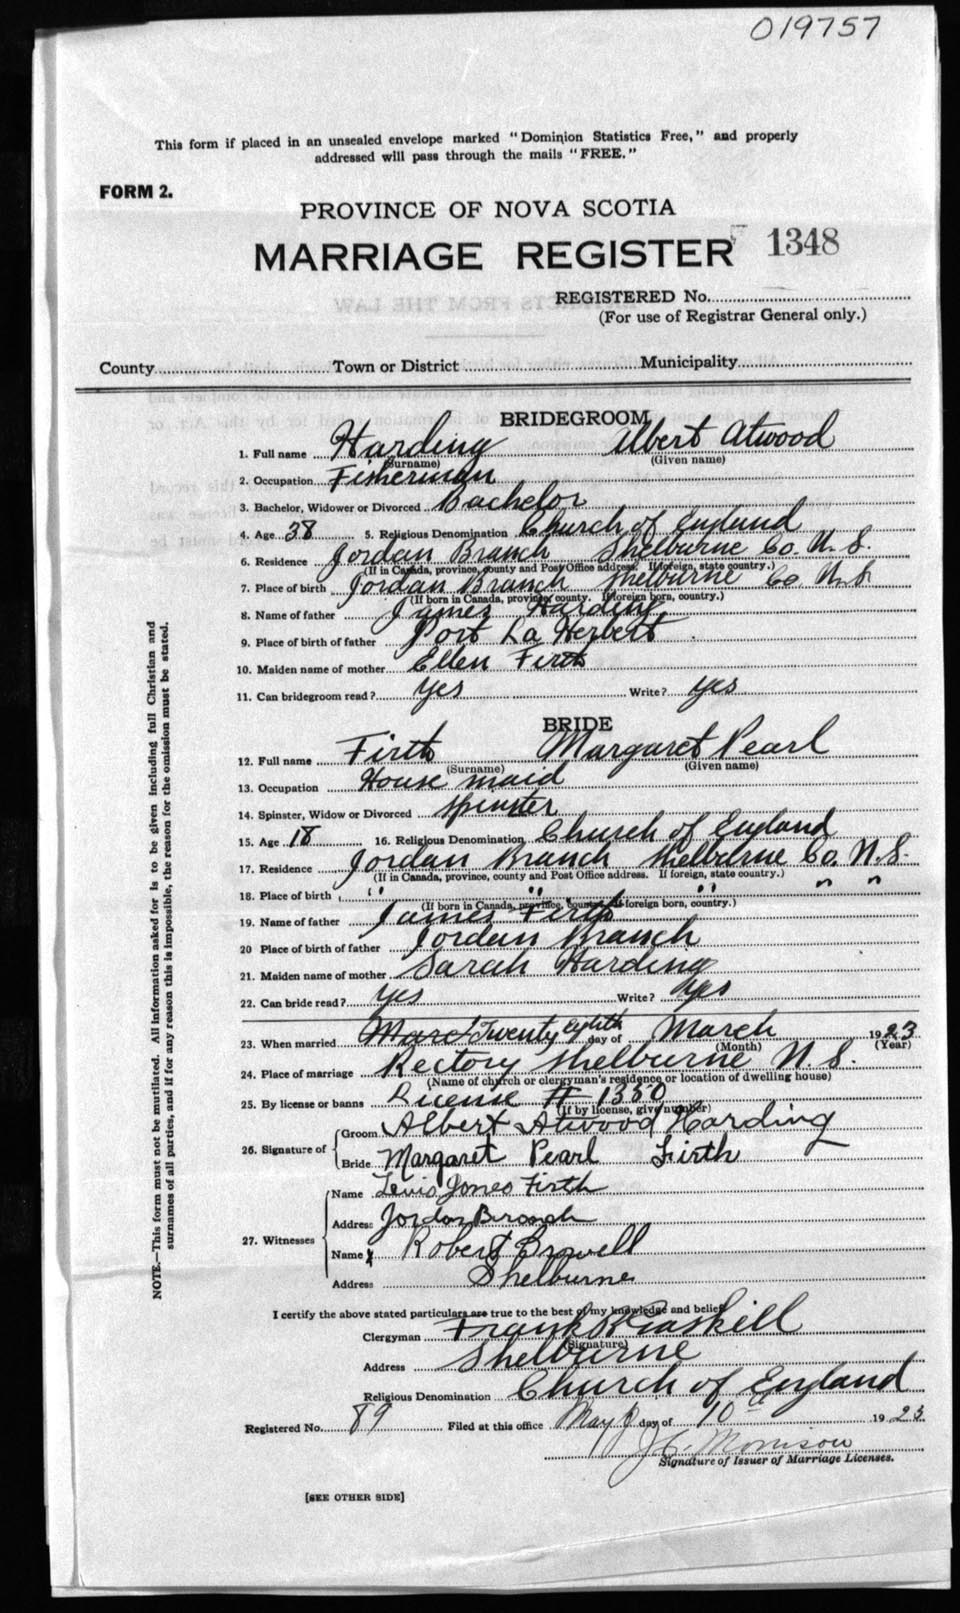 019757
This form if placed in an unsealed envelope marked "Dominion Statistics Free," and properly
addressed will pass through the mails "FREE."
FORM 2.
PROVINCE OF NOVA SCOTIA
MARRIAGE REGISTER 1348
REGISTERED No.
(For use of Registrar General only.)
County Town or District Municipality
BRIDEGROOM
1. Full name Harding Albert Atwood
(Surname) (Given name)
2. Occupation Fisherman
3. Bachelor, Widower or Divorced Bachelor
4. Age 38 5. Religious Denomination Church of England
6. Residence Jordan Branch Shelburne Co. N.S.
(If in Canada, province, county and Post Office address. If foreign, state country.)
7. Place of birth Jordan Branch Shelburne Co. N.S
(If born in Canada, province, county. If foreign born, country.)
8. Name of father James Harding
9. Place of birth of father Port La Herbert
10. Maiden name of mother Ellen Firth
11. Can bridegroom read? yes Write? yes
BRIDE
12. Full name Firth Margaret Pearl
(Surname) (Given name)
13. Occupation House maid
14. Spinster, Widow or Divorced Spinster
15. Age 18 16. Religious Denomination Church of England
17. Residence Jordan Branch Shelburne Co. N.S.
(If in Canada, province, county and Post Office address. If foreign, state country.)
18. Place of birth " " " " "
(If born in Canada, province, county. If foreign born, country.)
19. Name of father James Firth
20 Place of birth of father Jordan Branch
21. Maiden name of mother Sarah Harding
22. Can bride read? yes Write? yes
23. When married Marc Twenty eighth day of March 1923
(Month) (Year)
24. Place of marriage Rectory Shelburne N.S.
(Name of church or clergyman's residence or location of dwelling house)
25. By license or banns License # 1350
(If by license, give number)
26. Signature of Groom Albert Atwood Harding
Bride Margaret Pearl Firth
27. Witnesses Name Lewis Jones Firth
Address Jordan Branch
Name Robert
Address Shelburne
I certify the above stated particulars are true to the best of my knowledge and belief.
Clergyman Frank R Gaskill
(Signature)
Address Shelburne
Religious Denomination Church of England
Registered No. 89 Filed at this office May day of 10th 1923
Morrison
Signature of Issuer of Marriage Licenses.
[SEE OTHER SIDE]
NOTE.—This form must not be mutilated. All information asked for is to be given including full Christian and
surnames of all parties, and if for any reason this is impossible, the reason for the omission must be stated.